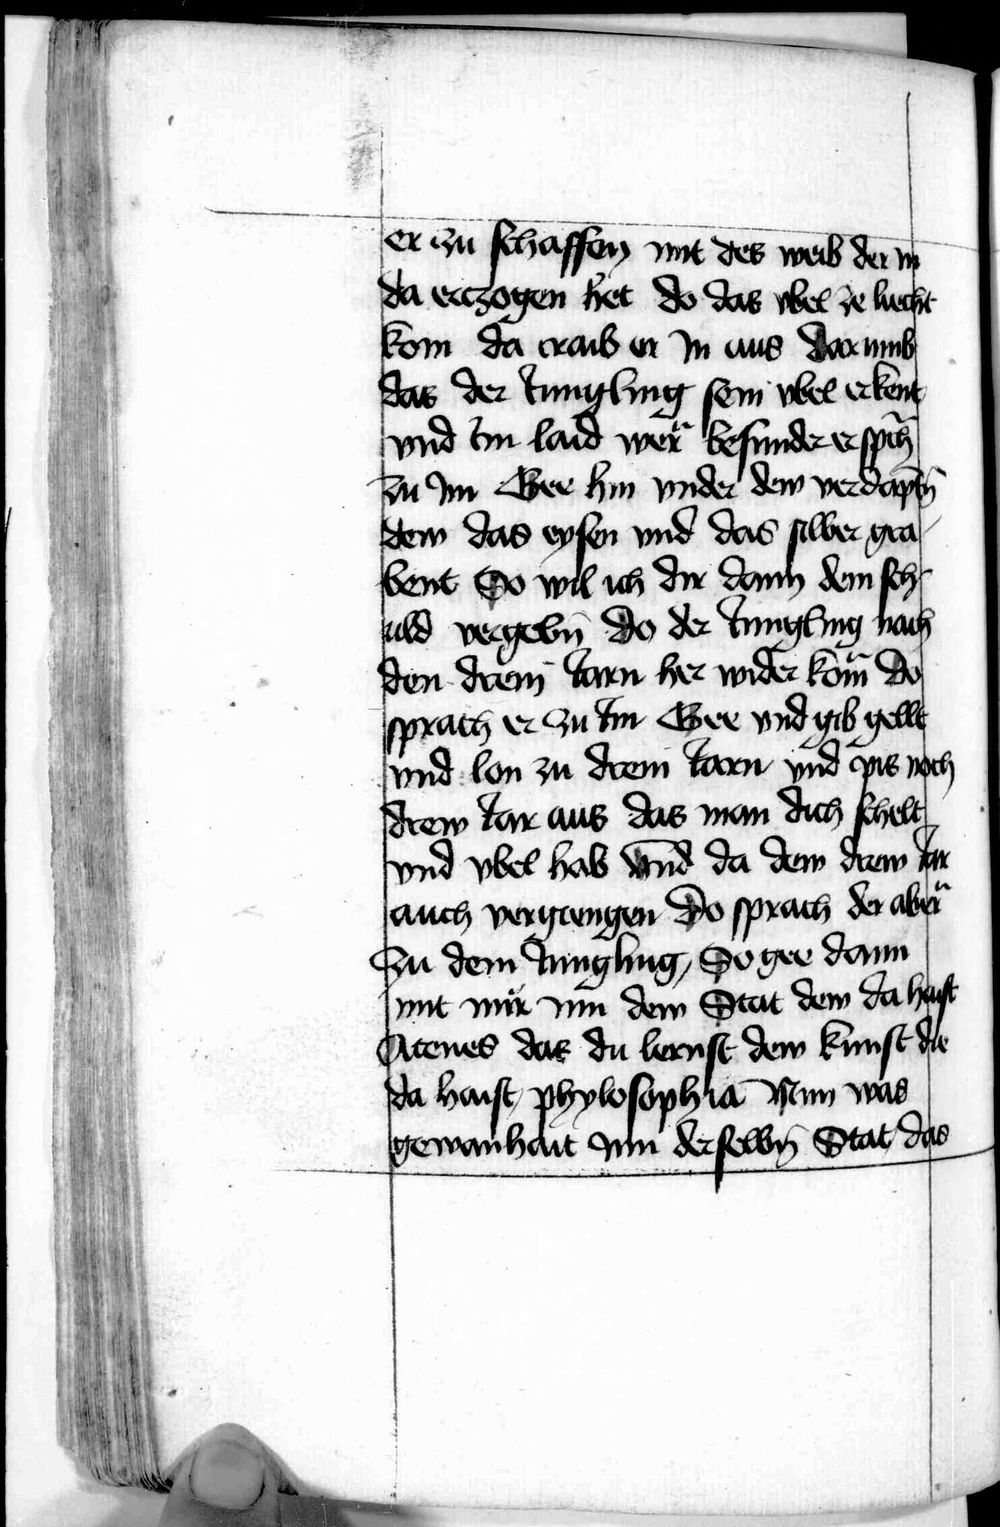 er zu schaffen mit des weib der in
da erczogen het do das vbel ze liecht
kom da traib er In aus Dar umb
das der Jungling sein vbel erkent
vnd Im laid wer besunder er sprch
zu Im Gee hin vnder dew verdaptn
dew das eysen vnd das silber gra
bent So wil ich dir dann dein sch
uld vergebn Do der Jungling nach
den drein Iarn her wider kom Do
sprach er zu Im Gee vnd gib gellt
vnd lon zu drein Iarn vnd pis noch
drew Iar aus das man dich schelt
vnd vbel hab Vnd da dew drew Iar
auch vergiengen Do sprach der aber
Zu dem Jungling So gee dann
mit mir inn dew Stat dew da haist
Atenes das du lernst dew kunst die
da haist phylosophia Nun was
gewanhait inn derselbn Stat das